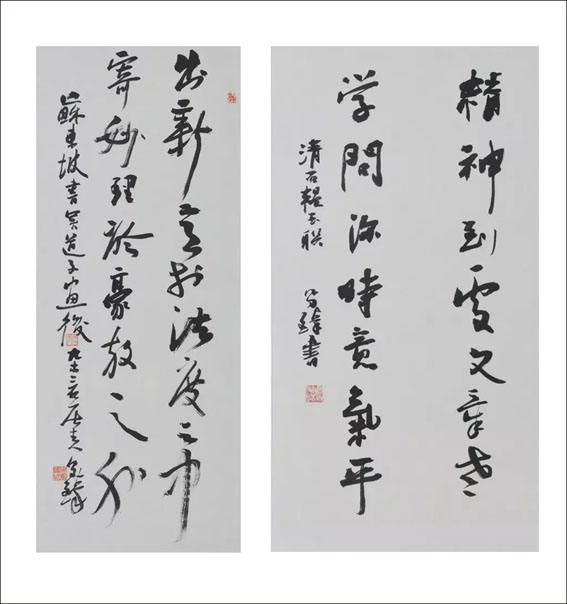 精神到處文章老
学問深時意氣平
清石韞玉联
書
出新意於法度之中
寄妙理於豪放之外
蘇東坡書吳道子畫後